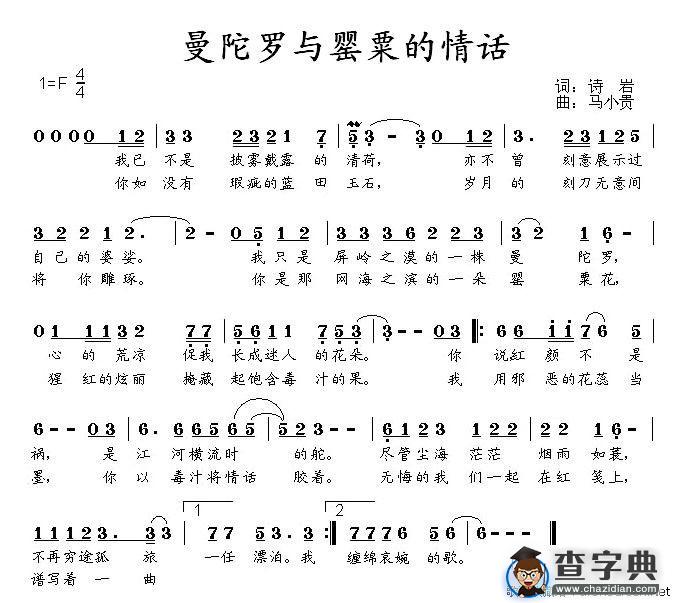 曼陀罗与罂粟的情话
1=F 4/4
词：诗 岩
曲：马小贵
0 0 0 0 1 2 | 3 3 2 3 2 1 7 | 5 3 · - 3 0 1 2 | 3 . 2 3 1 7 3 |
我已 不是 披雾戴露 的 清荷， 亦不 曾 刻意展示过
你如 没有 瑕疵的蓝 田 玉石， 岁月 的 刻刀无意间
3 2 2 2 1 2 . | 2 - 0 5 1 2 | 3 3 3 6 2 2 1 2 | 3 2 1 6 - |
自己的婆娑。 我只是 屏岭之漠的一株 曼 陀罗，
将 你雕琢。 你是那 网海之滨的一朵 罂 粟花，
0 1 1 1 3 2 7 7 | 5 6 1 1 7 5 3 | 3 - - 0 3 |: 6 6 i i 7 6 5 |
心 的 荒凉 促我 长成迷人 的花朵。 你 说红 颜 不 是
猩 红的炫丽 掩藏 起饱含毒 汁的果。 我 用邪 恶的花蕊 当
6 - - 0 3 | . 6 6 6 5 6 5 | 5 2 3 - - | 6 1 2 3 2 1 2 2 | 2 2 1 6 - |
祸， 是 江 河横流时 的舵。 尽管尘海 茫茫 烟雨 如蓑，
墨， 你 以 毒汁将情话 胶着。 无悔的我 们一起 在红 笺上，
1 1 1 1 2 3 . 3 | 3 1 7 7 5 3 . 3 :| 7 7 7 7 6 5 6 | 6 - - - |
1
2
不再穷途孤 旅 一任 漂泊。我 缠绵哀婉 的歌。
谱写着 一 曲
查字典
www.chazidian.com